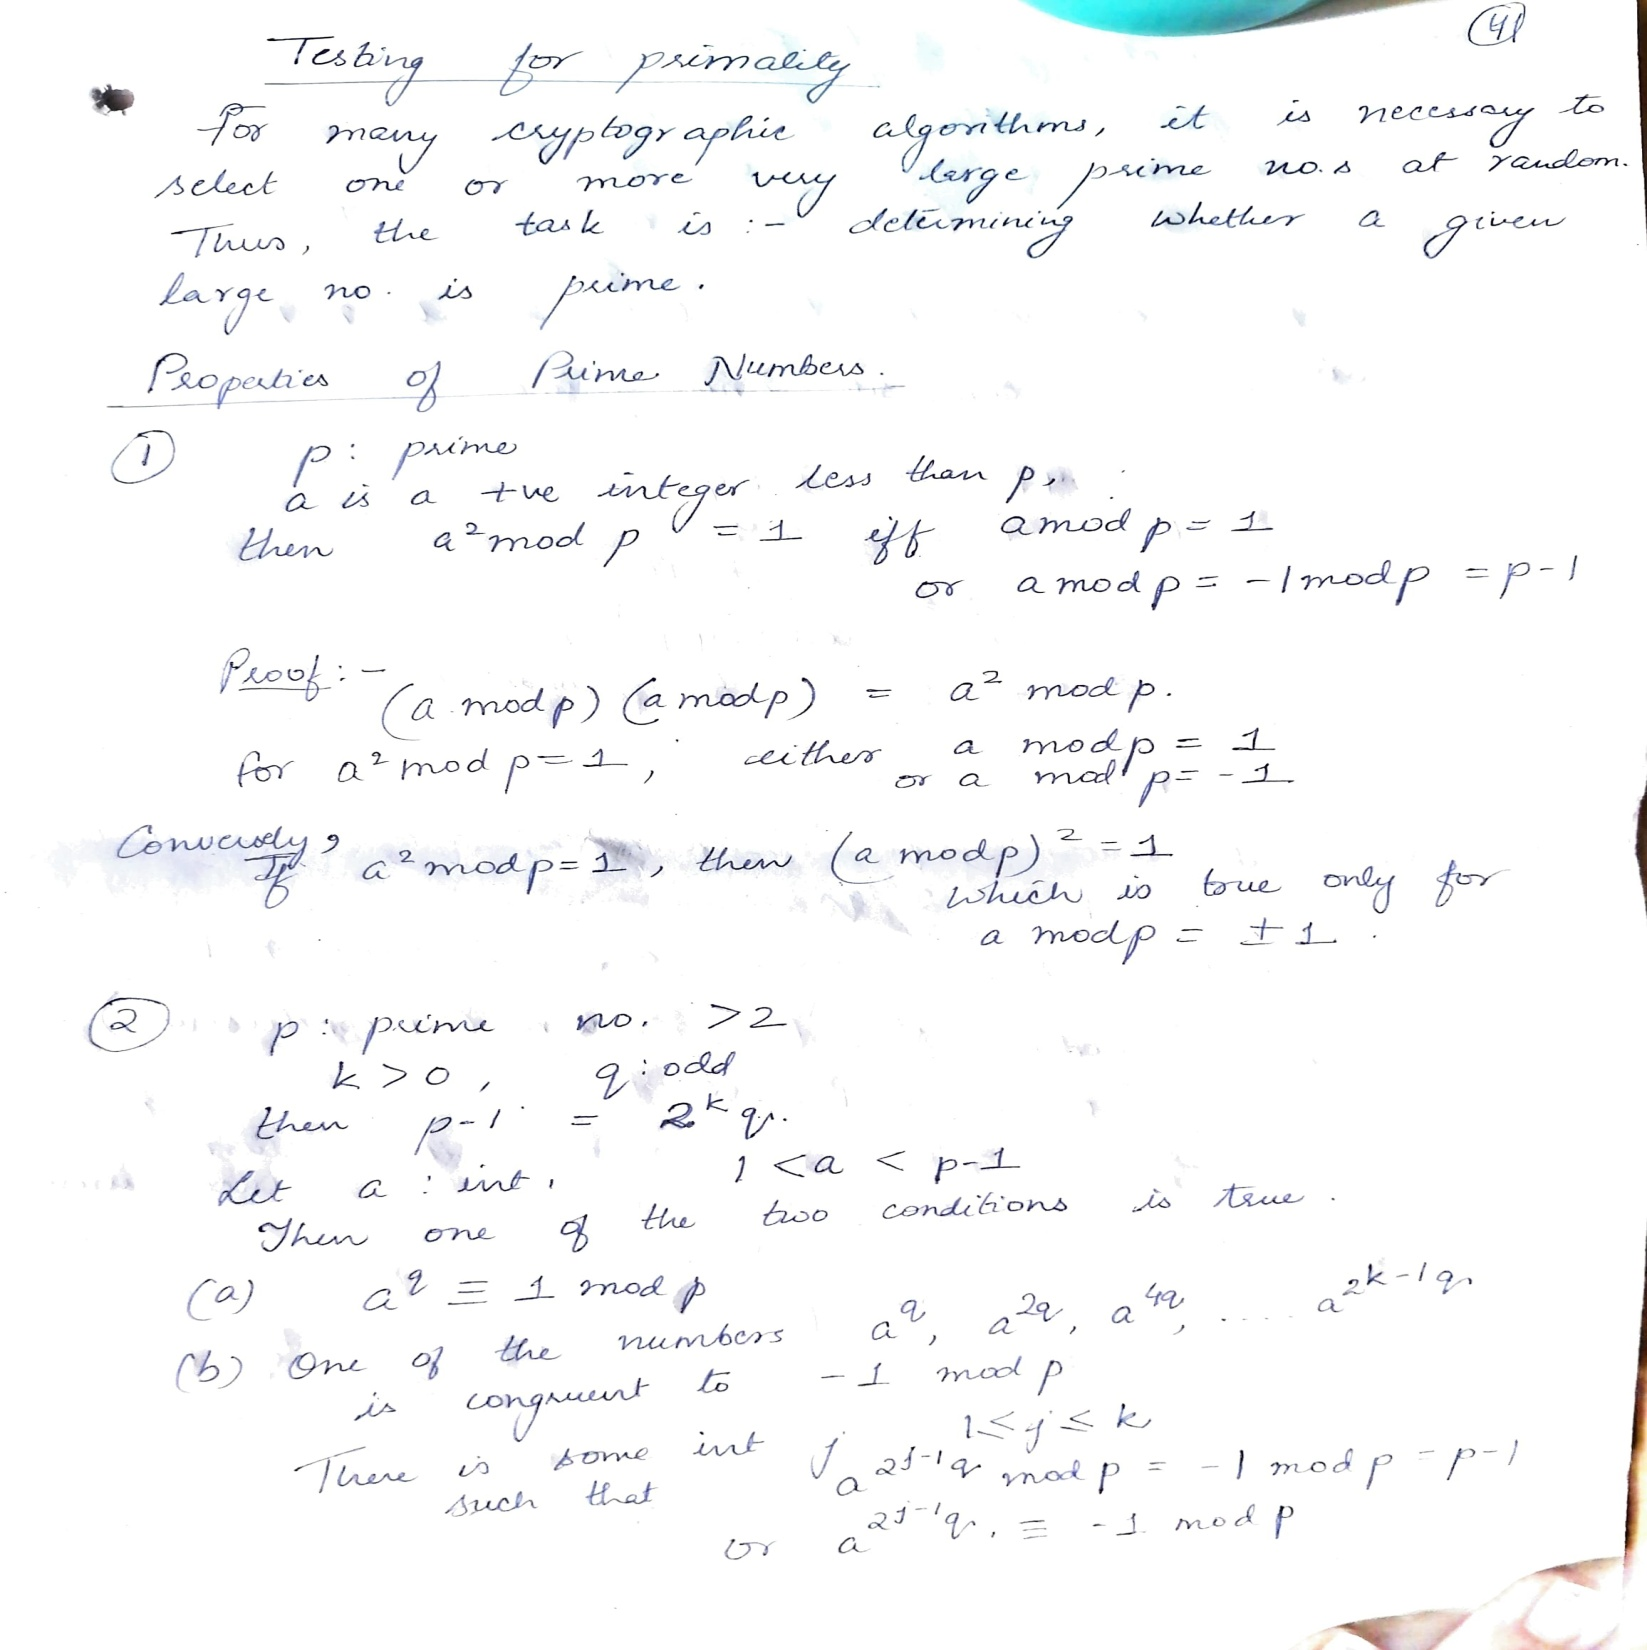 41
Testing for primality
For many cryptographic algorithms, it is necessary to
select one or more very large prime no.s at random.
Thus, the task is :- determining whether a given
large no. is prime.
Properties of Prime Numbers.
① p: prime
a is a +ve integer less than p,
then a² mod p = 1 iff a mod p = 1
or a mod p = -1 mod p = p-1
Proof :-
(a mod p) (a mod p) = a² mod p.
for a² mod p = 1, either a mod p = 1
or a mod p = -1
Conversely,
If a² mod p = 1, then (a mod p)² = 1
which is true only for
a mod p = ±1.
② p: prime no. >2
k > 0, q: odd
then p-1 = 2^k q.
Let a : int, 1 < a < p-1
Then one of the two conditions is true.
(a) a^q ≡ 1 mod p
(b) One of the numbers a^q, a^2q, a^4q, ..... a^2^k-1 q
is congruent to -1 mod p
There is some int j 1 ≤ j ≤ k
such that a^2^j-1 q mod p = -1 mod p = p-1
or a^2^j-1 q. ≡ -1 mod p